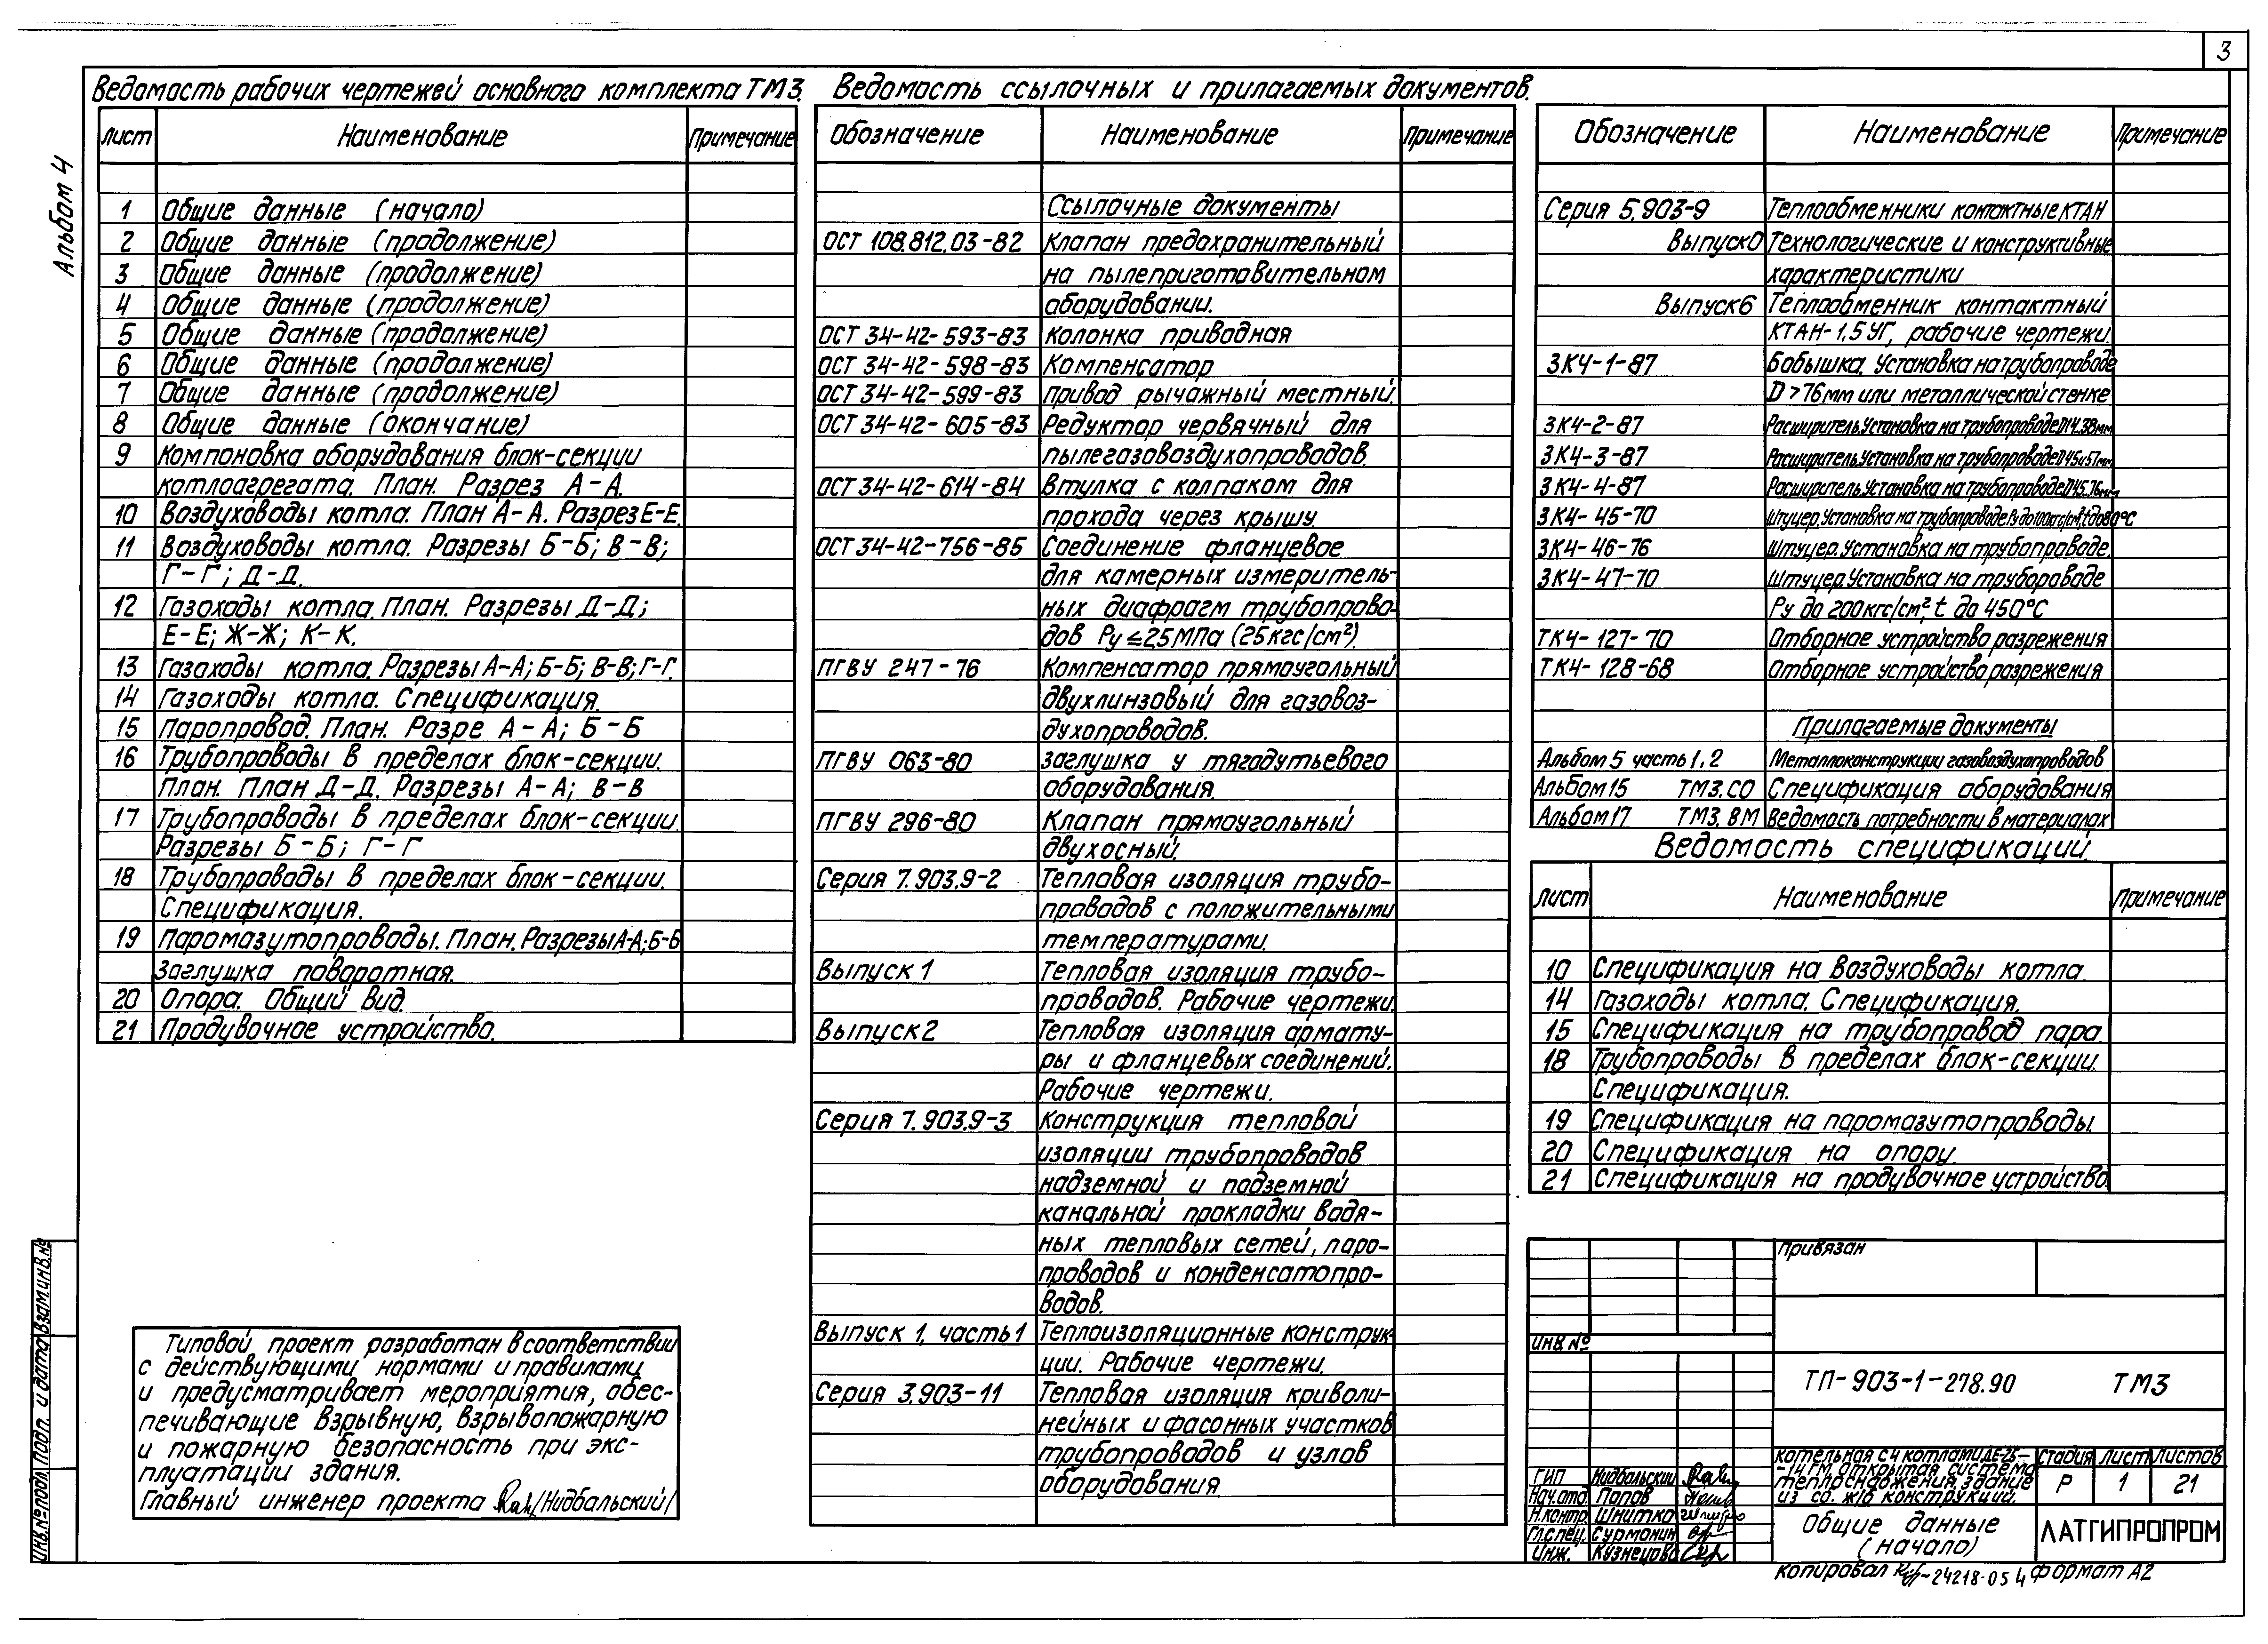 3
Альбом 4
Ведомость рабочих чертежей основного комплекта ТМ3.
Лист Наименование Примечание
1 Общие данные (начало)
2 Общие данные (продолжение)
3 Общие данные (продолжение)
4 Общие данные (продолжение)
5 Общие данные (продолжение)
6 Общие данные (продолжение)
7 Общие данные (продолжение)
8 Общие данные (окончание)
9 Компоновка оборудования блок-секции
котлоагрегата. План. Разрез А-А.
10 Воздуховоды котла. План А-А. Разрез Е-Е.
11 Воздуховоды котла. Разрезы Б-Б; В-В;
Г-Г; Д-Д.
12 Газоходы котла. План. Разрезы Д-Д;
Е-Е; Ж-Ж; К-К.
13 Газоходы котла. Разрезы А-А; Б-Б; В-В; Г-Г.
14 Газоходы котла. Спецификация.
15 Паропровод. План. Разре А-А; Б-Б
16 Трубопроводы в пределах блок-секции.
План. План Д-Д. Разрезы А-А; В-В
17 Трубопроводы в пределах блок-секции.
Разрезы Б-Б; Г-Г
18 Трубопроводы в пределах блок-секции.
Спецификация.
19 Паромазутопроводы. План. Разрезы А-А; Б-Б
Заглушка поворотная.
20 Опора. Общий вид.
21 Продувочное устройство.
Типовой проект разработан в соответствии
с действующими нормами и правилами
и предусматривает мероприятия, обес-
печивающие взрывную, взрывопожарную
и пожарную безопасность при экс-
плуатации здания.
Главный инженер проекта /Нидбальский/
Ведомость ссылочных и прилагаемых документов.
Обозначение Наименование Примечание
Ссылочные документы
ОСТ 108.812.03-82 Клапан предохранительный
на пылеприготовительном
оборудовании.
ОСТ 34-42-593-83 Колонка приводная
ОСТ 34-42-598-83 Компенсатор
ОСТ 34-42-599-83 Привод рычажный местный.
ОСТ 34-42-605-83 Редуктор червячный для
пылегазовоздухопроводов.
ОСТ 34-42-614-84 Втулка с колпаком для
прохода через крышу.
ОСТ 34-42-756-85 Соединение фланцевое
для камерных измеритель-
ных диафрагм трубопрово-
дов Ру ≤ 2,5 МПа (25 кгс/см²).
ПГВУ 247-76 Компенсатор прямоугольный
двухлинзовый для газовоз-
духопроводов.
ПГВУ 063-80 Заглушка у тягодутьевого
оборудования.
ПГВУ 296-80 Клапан прямоугольный
двухосный.
Серия 7.903.9-2 Тепловая изоляция трубо-
проводов с положительными
температурами.
Выпуск 1 Тепловая изоляция трубо-
проводов. Рабочие чертежи.
Выпуск 2 Тепловая изоляция армату-
ры и фланцевых соединений.
Рабочие чертежи.
Серия 7.903.9-3 Конструкция тепловой
изоляции трубопроводов
надземной и подземной
канальной прокладки водя-
ных тепловых сетей, паро-
проводов и конденсатопро-
водов.
Выпуск 1, часть 1 Теплоизоляционные конструк-
ции. Рабочие чертежи.
Серия 3.903-11 Тепловая изоляция криволи-
нейных и фасонных участков
трубопроводов и узлов
оборудования
Обозначение Наименование Примечание
Серия 5.903-9 Теплообменники контактные КТАН
Выпуск 0 Технологические и конструктивные
характеристики
Выпуск 6 Теплообменник контактный
КТАН-1,5УГ, рабочие чертежи.
ЗК4-1-87 Бобышка. Установка на трубопроводе
D > 76мм или металлической стенке
ЗК4-2-87 Расширитель. Установка на трубопроводе D 14..38мм
ЗК4-3-87 Расширитель. Установка на трубопроводе D 45и57мм
ЗК4-4-87 Расширитель. Установка на трубопроводе D 45..76мм
ЗК4-45-70 Штуцер. Установка на трубопроводе Ру до 100кгс/см², t до 80°С
ЗК4-46-76 Штуцер. Установка на трубопроводе.
ЗК4-47-70 Штуцер. Установка на труборoваде
Ру до 200кгс/см², t до 450°С
ТК4-127-70 Отборное устройство разрежения
ТК4-128-68 Отборное устройство разрежения
Прилагаемые документы
Альбом 5 часть 1,2 Металлоконструкции газовоздухопроводов
Альбом 15 ТМ3.СО Спецификация оборудования
Альбом 17 ТМ3.ВМ Ведомость потребности в материалах
Ведомость спецификаций.
Лист Наименование Примечание
10 Спецификация на воздуховоды котла.
14 Газоходы котла. Спецификация.
15 Спецификация на трубопровод пара.
18 Трубопроводы в пределах блок-секции.
Спецификация.
19 Спецификация на паромазутопроводы.
20 Спецификация на опору.
21 Спецификация на продувочное устройство.
Привязан
Инв.№
ТП-903-1-278.90 ТМ3
Котельная с 4 котлами ДЕ-25-
-14ГМ открытая система
теплоснабжения. здание
из сб. ж/б конструкций.
Стадия Лист Листов
Р 1 21
ГИП Нидбальский
Нач.отд. Попов
Н.контр. Шнитко
Гл.спец. Сурмонин
Инж. Кузнецова
Общие данные
(начало)
ЛАТГИПРОПРОМ
Копировал 24218-05 4 Формат А2
Инв.№подл. Подп. и дата Взам.инв.№